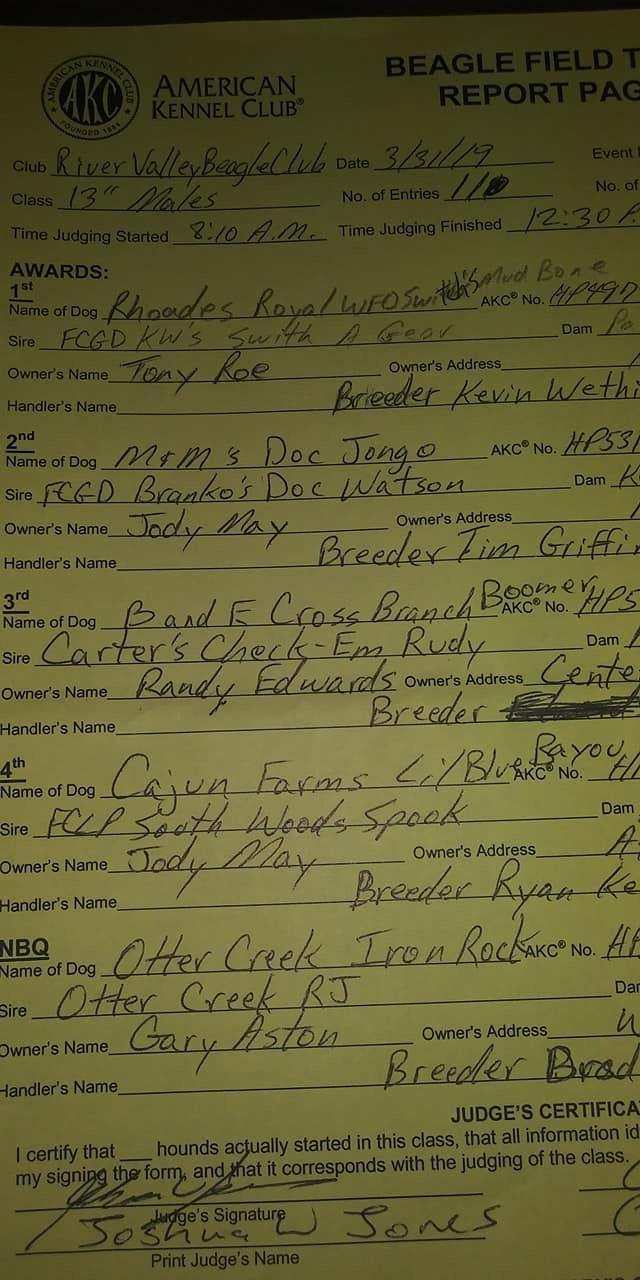 AMERICAN KENNEL CLUB
AKC
FOUNDED 1884
AMERICAN
KENNEL CLUB®
BEAGLE FIELD T
REPORT PAG
Club River Valley Beagle Club Date 3/31/19 Event
Class 13" Males No. of Entries 110 No. of
Time Judging Started 8:10 A.M. Time Judging Finished 12:30 P.
AWARDS:
1st
Name of Dog Rhoades Royal WFO Switch's Mud Bone AKC® No. HP49
Sire FCGD KW's Swith A Gear Dam Po
Owner's Name Tony Roe Owner's Address
Handler's Name Breeder Kevin Wethi
2nd
Name of Dog M+M's Doc Jongo AKC® No. HP531
Sire FCGD Branko's Doc Watson Dam K
Owner's Name Jody May Owner's Address
Handler's Name Breeder Tim Griffi
3rd
Name of Dog B and E Cross Branch Boomer AKC® No. HP5
Sire Carter's Check-Em Rudy Dam
Owner's Name Randy Edwards Owner's Address Cente
Handler's Name Breeder
4th
Name of Dog Cajun Farms Li'l Blue Bayou AKC® No. H
Sire FCLP South Woods Spook Dam
Owner's Name Jody May Owner's Address A
Handler's Name Breeder Ryan Ke
NBQ
Name of Dog Otter Creek Iron Rock AKC® No. H
Sire Otter Creek RJ Da
Owner's Name Gary Aston Owner's Address W
Handler's Name Breeder Brad
JUDGE'S CERTIFICA
I certify that ___ hounds actually started in this class, that all information id
my signing the form, and that it corresponds with the judging of the class.
Judge's Signature
Joshua W Jones
Print Judge's Name